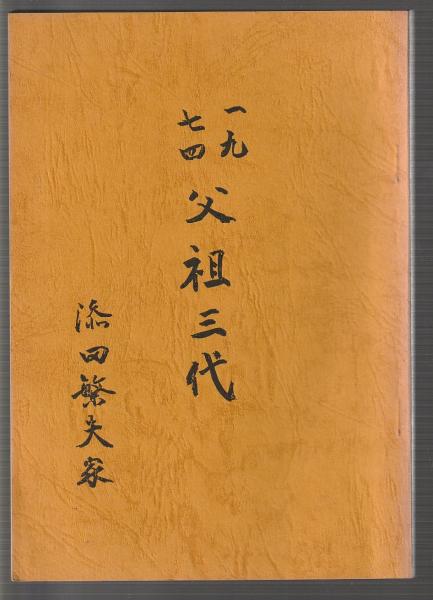 一九
七四
父祖三代
添田繁夫家